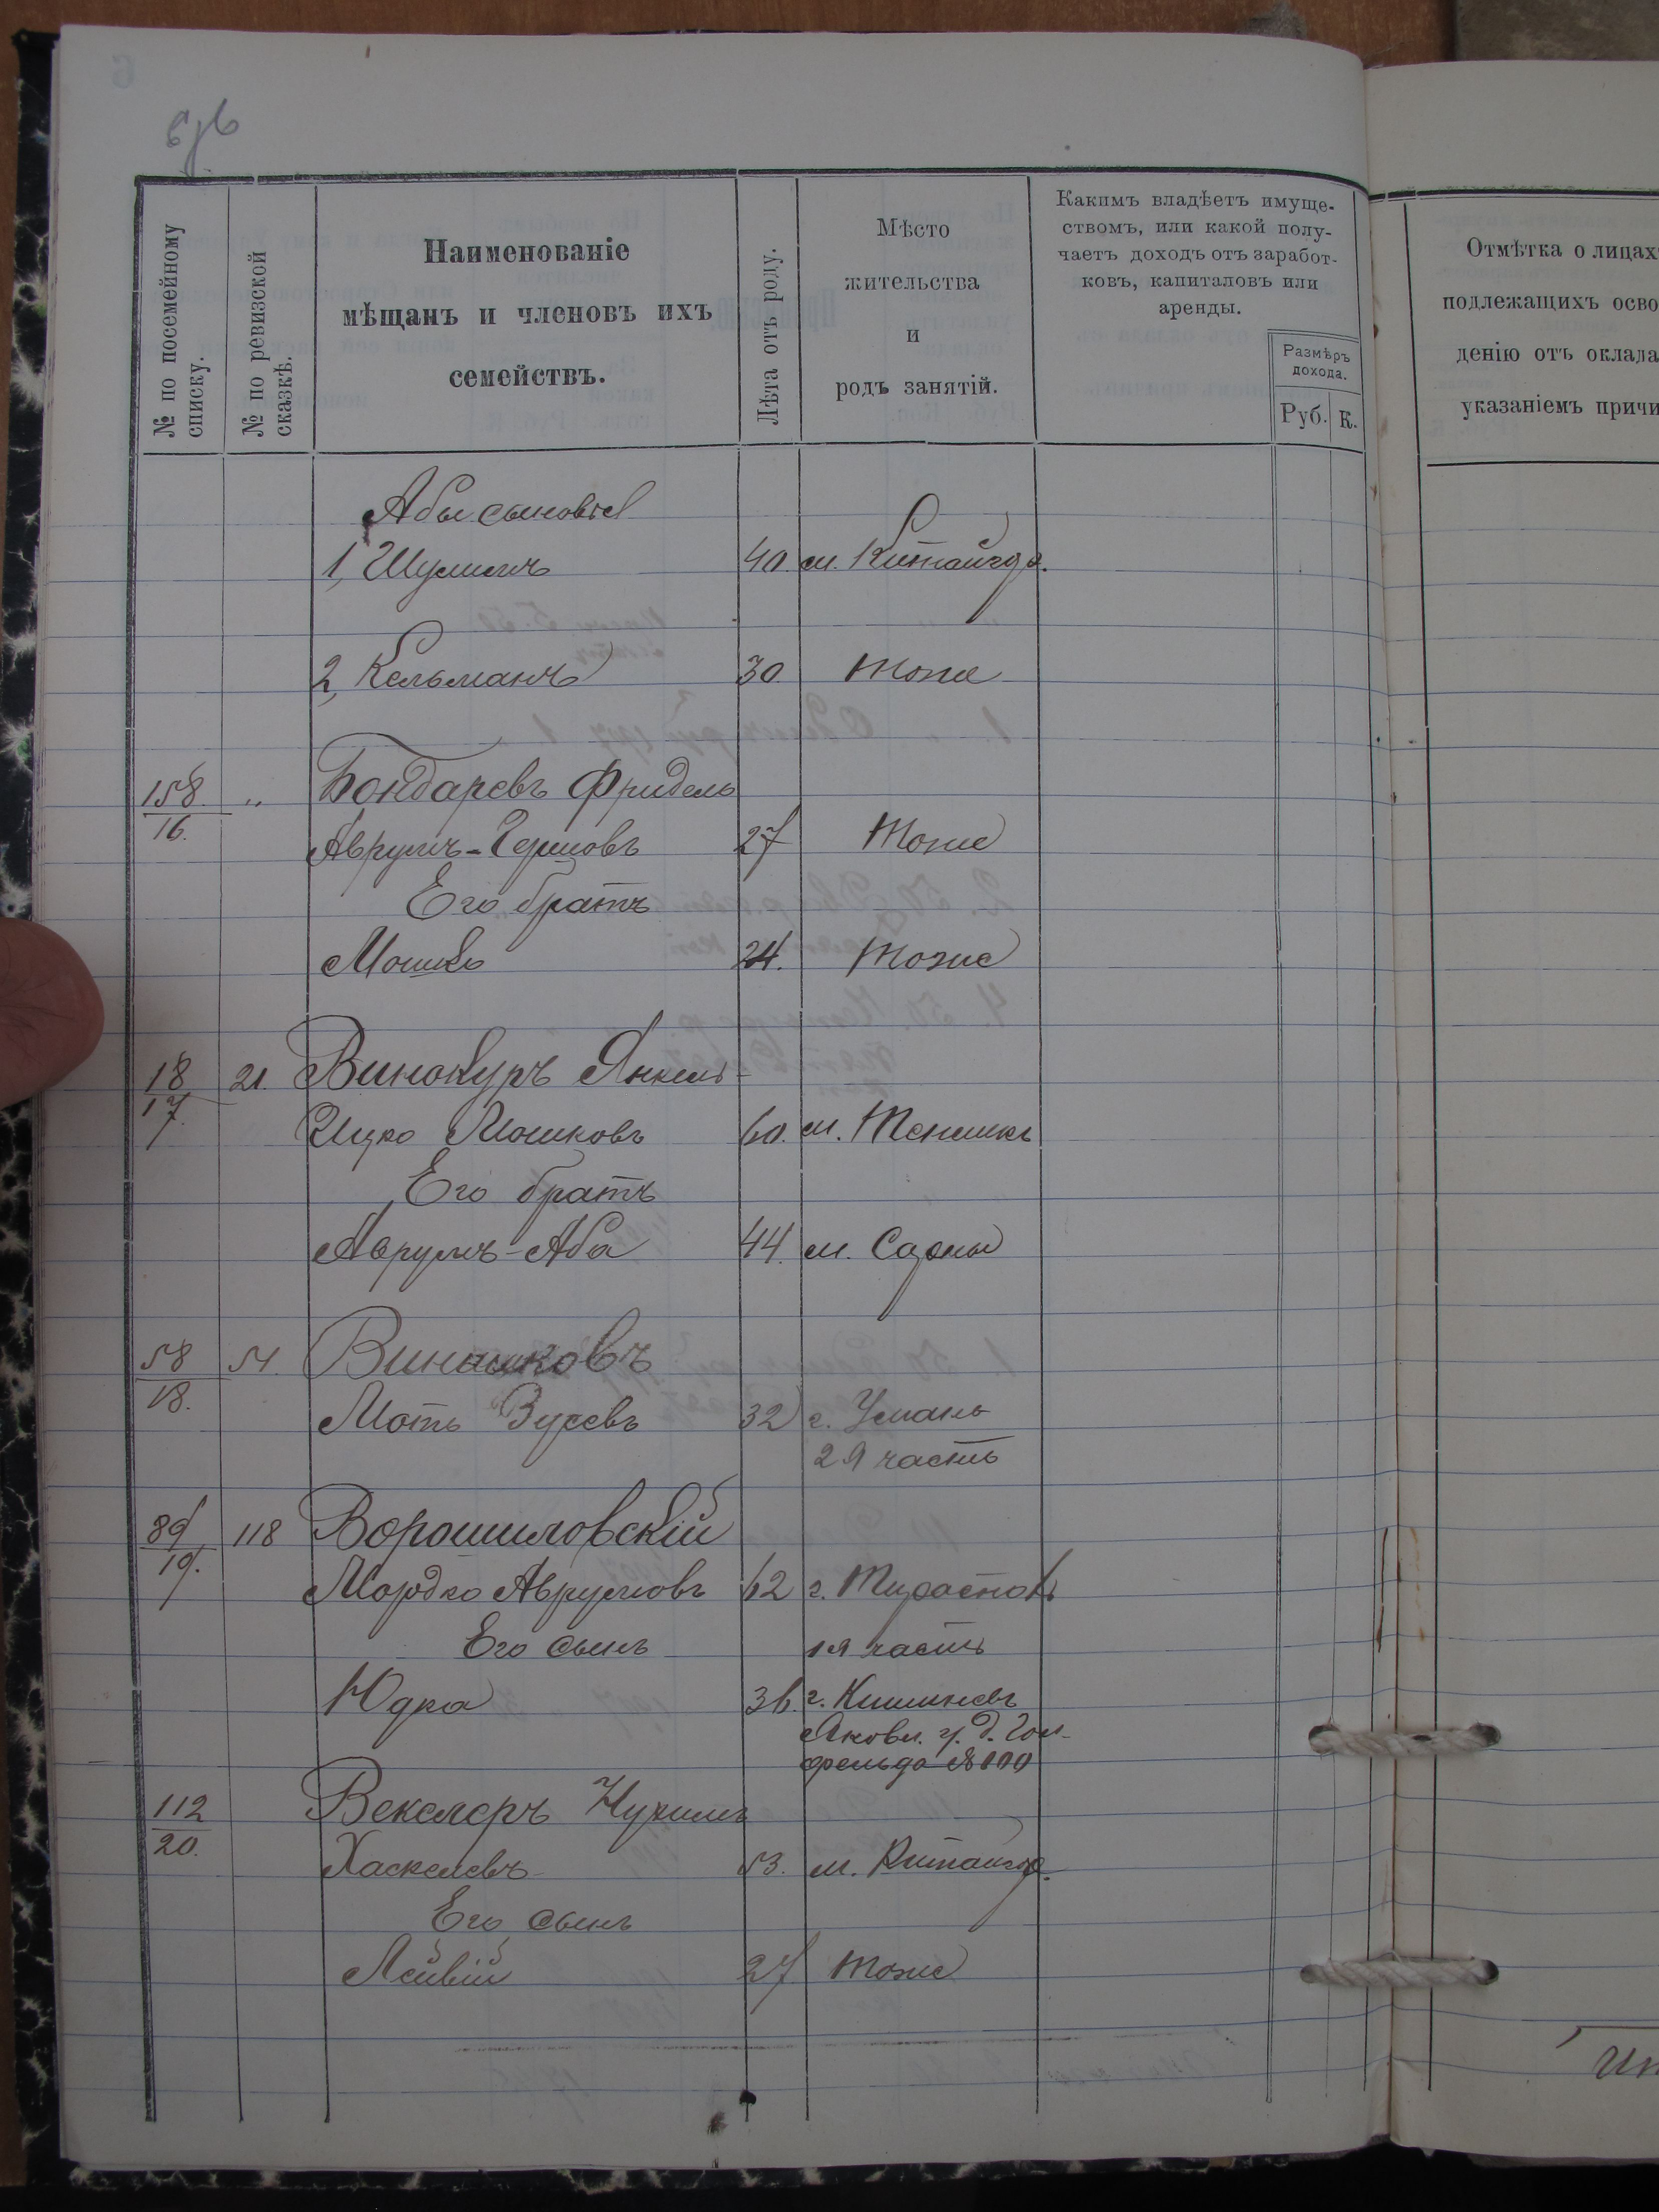 № по посемейному списку.
№ по ревизской сказкѣ.
Наименованіе
мѣщанъ и членовъ ихъ
семействъ.
Лѣта отъ роду.
Мѣсто
жительства
и
родъ занятій.
Какимъ владѣетъ имуще-
ствомъ, или какой полу-
чаетъ доходъ отъ заработ-
ковъ, капиталовъ или
аренды.
Размѣръ
дохода.
Руб. К.
Отмѣтка о лицах
подлежащихъ осво
денію отъ оклада
указаніемъ причи
Абы сыновья
1, Шулимъ 40. м. Китайгор.
2, Кельманъ 30 тоже
158 „ Бондаревъ Фридель
16. Аврумъ-Гершовъ 27 тоже
Его братъ
Мошко 24. тоже
18 21. Винокуръ Янкель-
17. Ицко Мошковъ 60. м. Тепликъ
Его братъ
Аврумъ-Аба 44. м. Саврань
58 51. Винниковъ
18. Моть Зусевъ 32 г. Умань
2я часть
89 118 Ворошиловскій
19. Мордко Аврумовъ 62 г. Тирасполь
Его сынъ 1я часть
Юдка 36. г. Кишиневъ
112 Векслеръ Нухимъ
20. Хаскелевъ 53. м. Китайгор.
Его сынъ
Лейвій 27 тоже